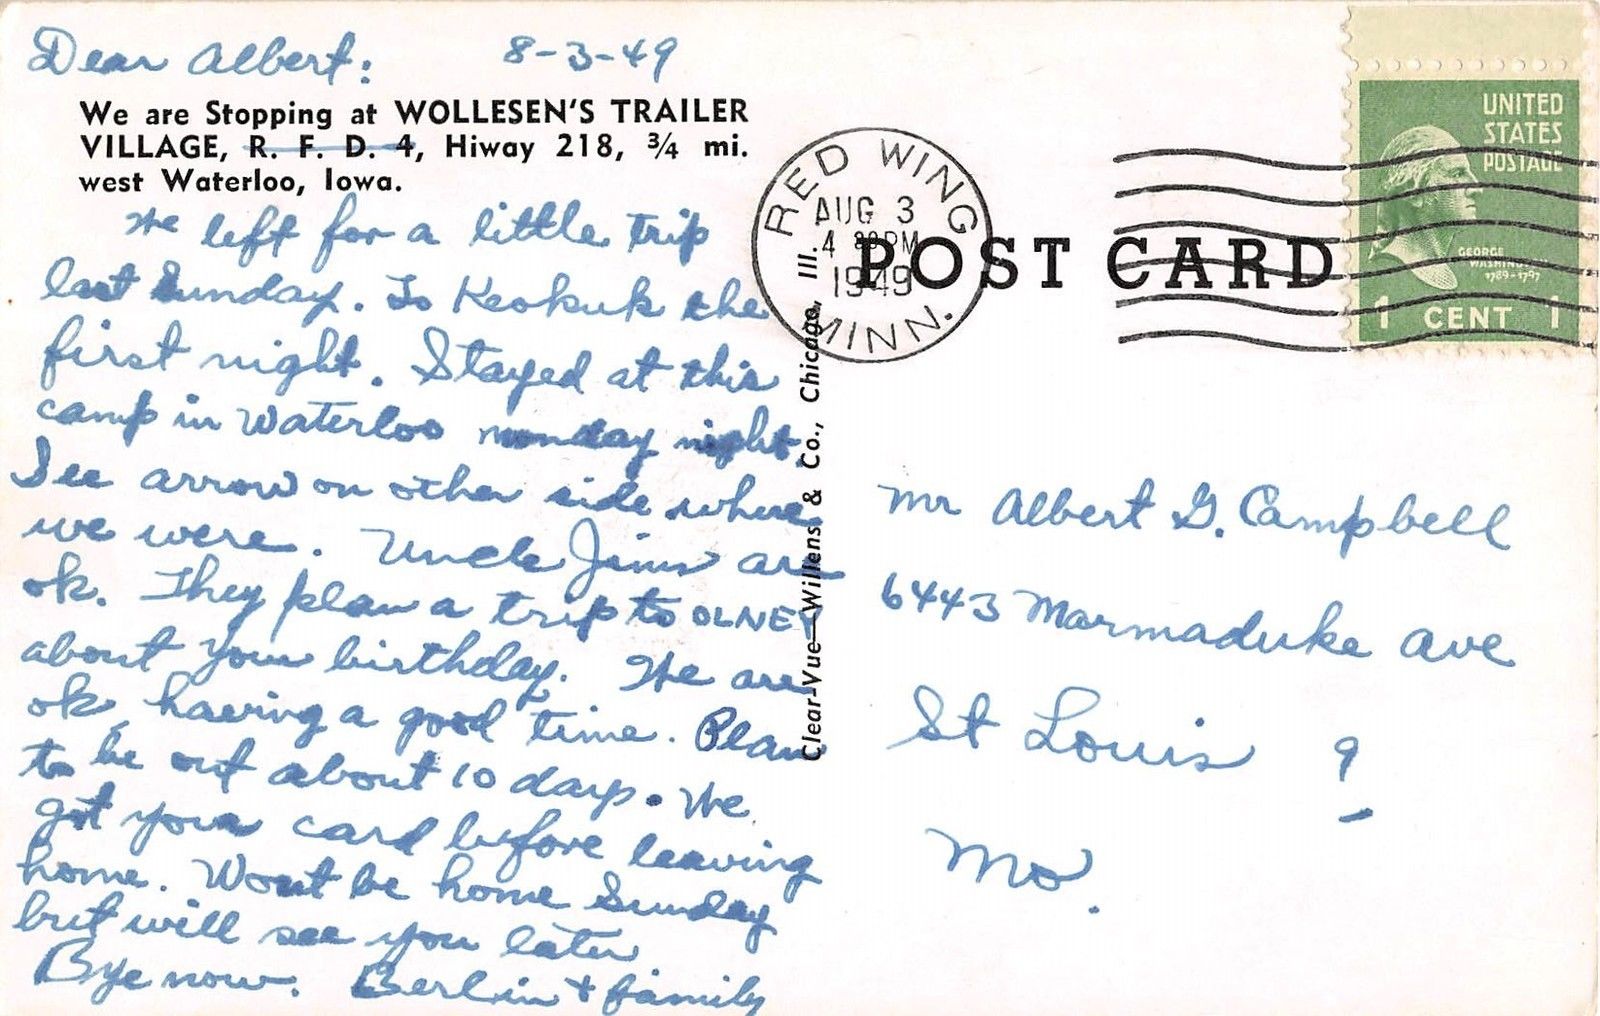 Dear Albert: 8-3-49
We are Stopping at WOLLESEN'S TRAILER
VILLAGE, R. F. D. 4, Hiway 218, ¾ mi.
west Waterloo, Iowa.
We left for a little trip
last Sunday. To Keokuk the
first night. Stayed at this
camp in Waterloo monday night.
See arrow on other side where
we were. Uncle Jims are
ok. They plan a trip to OLNEY
about your birthday. We are
ok, having a good time. Plan
to be out about 10 days. We
got your card before leaving
home. Wont be home Sunday
but will see you later
Bye now. Berlin + family
Clear-Vue—Willens & Co., Chicago, Ill.
RED WING
AUG 3
4 PM
1949
MINN.
POST CARD
UNITED
STATES
POSTAGE
GEORGE
WASHINGTON
1789-1797
1 CENT 1
Mr Albert G. Campbell
6443 Marmaduke Ave
St Louis 9
Mo.